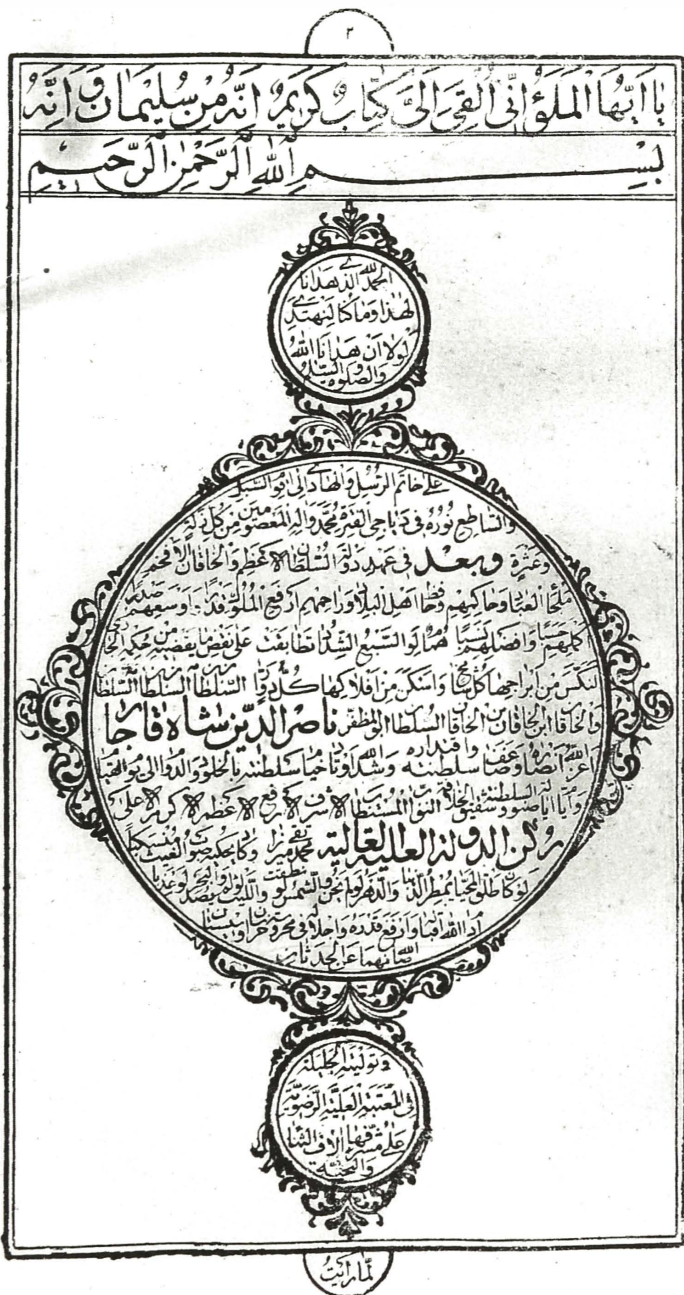 ٢
يا ايها الملؤ انى القى الى كتاب كريم انه من سليمان و انه
بسم الله الرحمن الرحيم
الحمد لله الذى هدانا
لهذا وما كنا لنهتدى
لولا ان هدانا الله
والصلوة والسلام
على خاتم الرسل والهادى الى اقوم السبل
والساطع نوره فى دياجى الفترة محمد واله المعصومين من كل زلة
وعثرة وبعد فى عهد دولة السلطان الاعظم والخاقان الافخم
ملجا العباد وحاكمهم وحافظ اهل البلاد وراحمهم ارفع الملوك قدرا واوسعهم صدرا
حسبا وافضلهم نسبا هو لو السبع الشداد تطابقت على نقض ما يقضيه من حكمه
لنكس من ابراجها كل واسكن من افلاكها كل السلطان السلطان السلطان
والخاقان ابن الخاقان بن الخاقان السلطان ابو المظفر ناصر الدين شاه قاجار
انصاره وضاعف سلطنته واقتداره وشد اوتاد خيام سلطنته بالخلود والدوام الى يوم القيام
وايام ايالة صنو السلطنة وشقيق الخلافة النواب المستطاب الاشرف الارفع الاعظم الاكرم الاعلى
ركن الدولة العلية العالية محمد تقى ميرزا وكاد يحكيه صوب الغيث منسكبا
لو كان طلق المحيا يمطر الذهبا والدهر لو لم يخن والشمس لو نطقت والليث لو لم يصد والبحر لو عذبا
ادام الله اقباله وارفع قدره واجلاله فى
صانهما الله عن الحدثان
وتوليته الجليلة
فى العتبة العلية الرضوية
على مشرفها الاف الثناء
والتحية
لما رايت